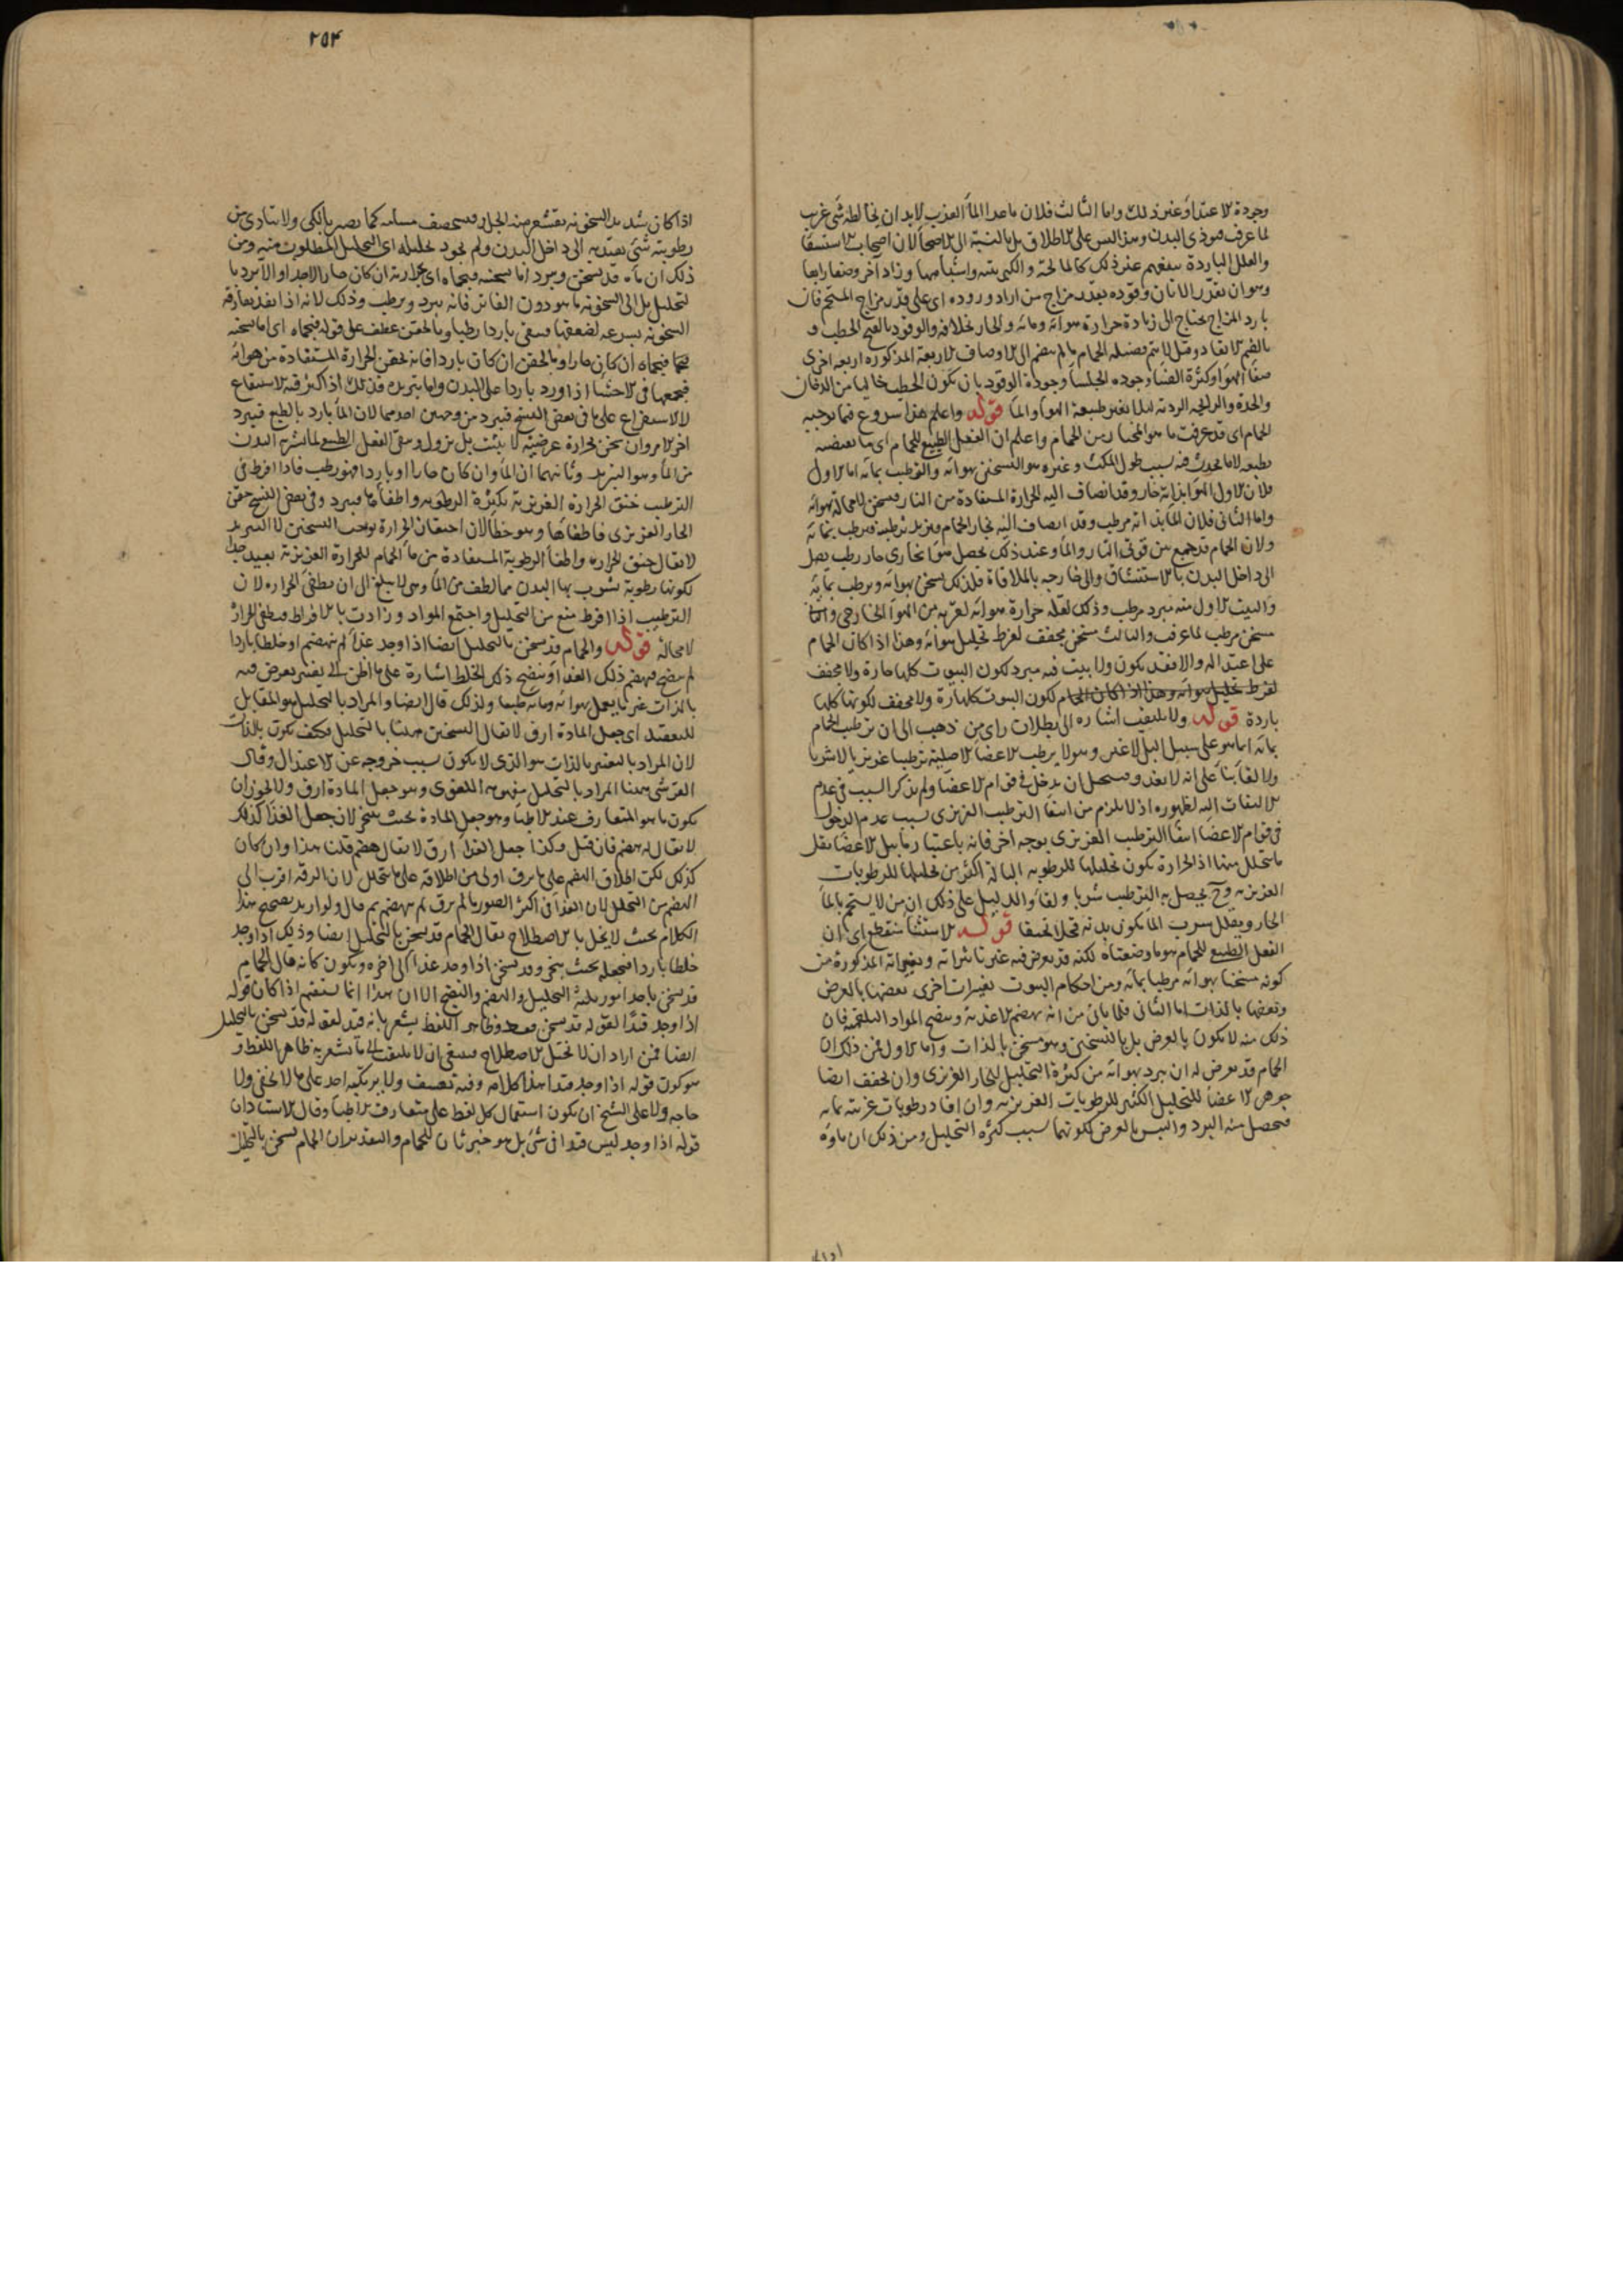 وجودة الاعتدال وغير ذلك واما الثالث فلان ما عدا الماء العذب لابد ان يخالطه شئ غريب
لما عرف موذى البدن وهذا ليس على الاطلاق بل بالنسبة الى الاصحاء لان اصحاب الاستسقاء
والعلل الباردة ينفعهم غير ذلك كالمالحة والكبريتية واشباهها وزاد آخر وصفا رابعا
وهو ان يقدر الاتان وقوده بقدر مزاج من اراد وروده اى على قدر مزاج المستحم فان
بارد المزاج يحتاج الى زيادة حرارة هوائه ومائه والحار بخلافه والوقود بالفتح الحطب و
بالضم الايقاد وقيل لا يتم فضيلة الحمام ما لم يضم الى الاوصاف الاربعة المذكورة اربعة اخرى
صفاء الهواء وكثرة الضياء وجودة الجلساء وجودة الوقود بان يكون الحطب خاليا من الدخان
والحدة والرائحة الردية لئلا يغير طبيعة الهواء والماء قوله واعلم هذا شروع فيما يوجبه
الحمام اى قد عرفت ما هو المختار من الحمام واعلم ان الفعل الطبيعى للحمام اى ما يقتضيه
بطبعه لا ما يحدث فيه بسبب طول المكث وغيره هو التسخين بهوائه والترطيب بمائه اما الاول
فلان الاول الهواء بذاته حار وقد انضاف اليه الحرارة المستفادة من النار فيسخن لا محالة بهوائه
واما الثانى فلان الماء بذاته مرطب وقد انضاف اليه بخار الحمام فيزيد ترطيبه فيرطب بمائه
ولان الحمام قد جمع بين قوتى النار والماء وعند ذلك يحصل هواء بخارى حار رطب يصل
الى داخل البدن بالاستنشاق والى خارجه بالملاقاة فلذلك يسخن بهوائه ويرطب بمائه
والبيت الاول منه مبرد مرطب وذلك لقلة حرارة هوائه لقربه من الهواء الخارجى والثانى
مسخن مرطب لما عرفت والثالث مسخن مجفف لفرط تحليل هوائه وهذا اذا كان الحمام
على اعتداله والا فقد يكون ولا بيت فيه مبرد لكون البيوت كلها حارة ولا مجفف
لفرط تحليل هوائه وهذا اذا كان الحمام لكون البيوت كلها حارة ولا مجفف لكونها كلها
باردة قوله ولا يلتفت اشارة الى بطلان راى من ذهب الى ان ترطيب الحمام
بمائه انما هو على سبيل البل لا غير وهو لا يرطب الاعضاء الاصلية ترطيبا غريزيا لا شربا
ولا لقاء بناء على انه لا يغذو ويستحيل ان يدخل فى قوام الاعضاء ولم يذكر السبب فى عدم
الالتفات اليه لظهوره اذ لا يلزم من انتفاء الترطيب الغريزى بسبب عدم الدخول
فى قوام الاعضاء انتفاء الترطيب الغريزى بوجه آخر فانه باعتبار ما يبل الاعضاء يقل
ما يتحلل منها اذ الحرارة يكون تحليلها للرطوبة البالة اكثر من تحليلها للرطوبات
الغريزية وح يحصل به الترطيب شربا ولقاء والدليل على ذلك ان من لا يستحم بالماء
الحار ويقلل شرب الماء يكون بدنه قحلا نحيفا قوله الاستثناء منقطع اى ان
الفعل الطبيعى للحمام هو ما وصفناه لكنه قد يعرض فيه غير تاثيراته وتغيراته المذكورة من
كونه مسخنا بهوائه مرطبا بمائه ومن احكام البيوت تغيرات اخرى بعضها بالعرض
وبعضها بالذات اما الثانى فلما ياتى من انه يهضم الاغذية وينضج المواد البلغمية فان
ذلك منه لا يكون بالعرض بل بالتسخين وهو مسخن بالذات واما الاول فمن ذلك ان
الحمام قد يعرض له ان يبرد بهوائه من كثرة التحليل للحار الغريزى وان يجفف ايضا
جوهر الاعضاء للتحليل الكثير للرطوبات الغريزية وان افاد رطوبات غريبة بمائه
فيحصل منه البرد واليبس بالعرض لكونهما بسبب كثرة التحليل ومن ذلك ان ماؤه
٢٥٣
اذا كان شديد السخونة يقشعر منه الجلد فيستحصف مسامه كما يصير بالكى ولا يتادى من
رطوبته شئ يعتد به الى داخل البدن ولم يجود تحليله اى التحليل المطلوب منه ومن
ذلك ان ماءه قد يسخن ويبرد اما تسخينه فبحماه اى بحرارته ان كان حارا لا جدا والا يبرد بال
لتحليل بل الى السخونة ما هو دون الفاتر فانه يبرد ويرطب وذلك لانه اذا نفذ يفارقه
السخونة بسرعة لضعفها فيبقى باردا رطبا وبالحقن عطف على قوله فبحماه اى اما تسخينه
فبحماه ان كان حارا او بالحقن ان كان باردا فانه يحقن الحرارة المستفادة من هوائه
فيجمعها فى الاحشاء اذا ورد باردا على البدن واما تبريده فذلك اذا كثر فيه الاستنقاع
لا الاستفراغ على ما فى بعض النسخ فيبرد من وجهين احدهما لان الماء بارد بالطبع فيبرد
آخر الامر وان سخن بحرارة عرضية لا يثبت بل يزول ويبقى الفعل الطبيعى لما تشربه البدن
من الماء وهو التبريد وثانيهما ان الماء وان كان حارا او باردا فهو رطب فاذا افرط فى
الترطيب خنق الحرارة الغريزية بكثرة الرطوبة واطفأها فيبرد وفى بعض النسخ حقن
الحار الغريزى فاطفاها وهو خطأ لان احتقان الحرارة يوجب التسخين لا التبريد
لا يقال خنق الحرارة واطفاء الرطوبة المستفادة من ماء الحمام للحرارة الغريزية بعيد جدا
لكونها رطوبة تشوب بها البدن مما لطف من الماء وهى لا يبلغ الى ان يطفئ الحرارة لان
الترطيب اذا افرط منع من التحليل واجتمع المواد وزادت بالافراط فيطفى الحرارة
لا محالة قوله والحمام قد يسخن بالتحليل ايضا اذا وجد غذاء لم ينهضم او خلطا باردا
لم ينضج فيهضم ذلك الغذاء وينضج ذلك الخلط اشارة على ما اظن الى تغيير يعرض فيه
بالذات غير ما يعمل بهوائه ومائه طبعا ولذلك قال ايضا والمراد بالتحليل هو المقابل
للتعقيد اى جعل المادة ارق لا يقال التسخين ههنا بالتحليل فكيف يكون بالذات
لان المراد بالتغيير بالذات هو الذى لا يكون بسبب خروجه عن الاعتدال وقال
القرشى ههنا المراد بالتحليل مفهومه اللغوى وهو جعل المادة ارق ولا يجوز ان
يكون ما هو المتعارف عند الاطباء وهو جعل المادة بحيث يتبخر لان جعل الغذاء كذلك
لا يقال له هضم فان قيل وكذا جعل الغذاء ارق لا يقال له هضم قلنا هذا وان كان
كذلك لكن اطلاق الهضم على ما يرق اولى من اطلاقه على ما يتحلل لان الرقة اقرب الى
الهضم من التحلل لان الغذاء فى اكثر الصور ما لم يرق لم ينهضم ثم قال ولو اريد تصحيح هذا
الكلام بحيث لا يخل بالاصطلاح يقال الحمام قد يسخن بالتحليل ايضا وذلك اذا وجد
خلطا باردا فيجعله بحيث يتبخر وقد يسخن اذا وجد غذاء الى آخره ويكون كانه قال الحمام
قد يسخن باحد امور ثلثة التحليل والهضم والنضج الا ان هذا انما يستقيم اذا كان قوله
اذا وجد قيدا لقوله قد يسخن فقط وظاهر اللفظ يشعر بانه قيد لقوله قد يسخن بالتحليل
ايضا فمن اراد ان لا يختل الاصطلاح فينبغى ان لا يلتفت الى ما يشعر به ظاهر اللفظ و
هو كون قوله اذا وجد قيدا هذا كلامه وفيه تعسف ولا يرتكبه احد على ما لا يخفى ولا
حاجة ولا على الشيخ ان يكون استعمال كل لفظ على متعارف الاطباء وقال الاستاد ان
قوله اذا وجد ليس قيدا فى شئ بل هو خبر ثان للحمام والتقدير ان الحمام يسخن بالتحليل